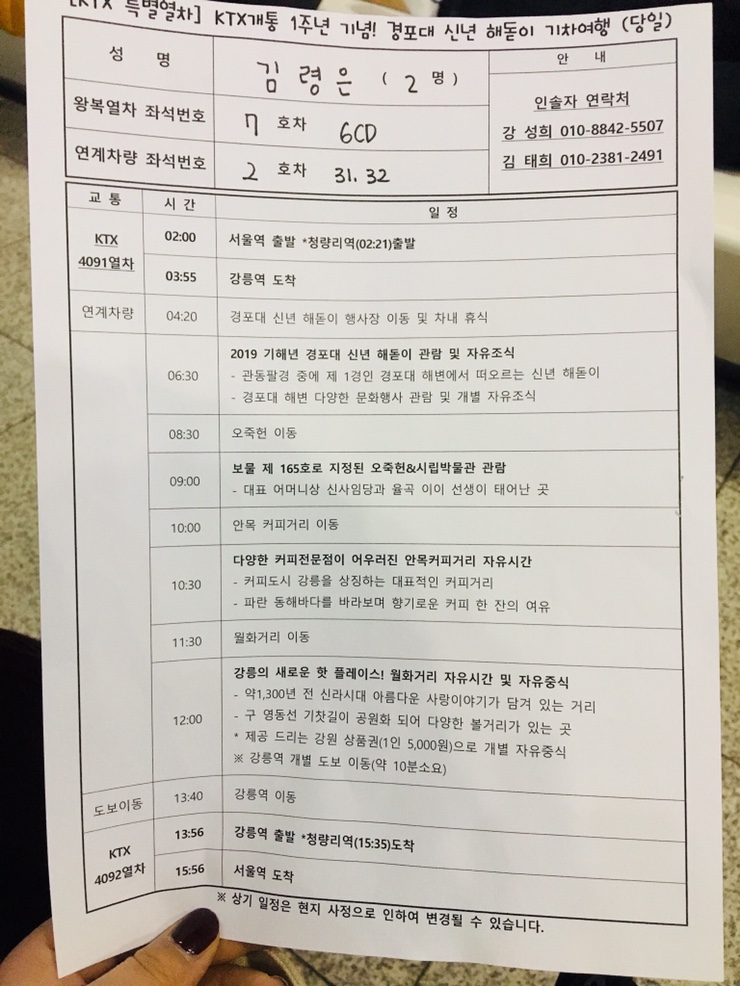 [KTX 특별열차] KTX개통 1주년 기념! 경포대 신년 해돋이 기차여행 (당일)
성 명
김령은 ( 2 명 )
안 내
왕복열차 좌석번호
7 호차 6CD
인솔자 연락처
강 성희 010-8842-5507
연계차량 좌석번호
2 호차 31. 32
김 태희 010-2381-2491
교 통 시 간 일 정
KTX
4091열차
02:00 서울역 출발 *청량리역(02:21)출발
03:55 강릉역 도착
연계차량 04:20 경포대 신년 해돋이 행사장 이동 및 차내 휴식
06:30
2019 기해년 경포대 신년 해돋이 관람 및 자유조식
- 관동팔경 중에 제 1경인 경포대 해변에서 떠오르는 신년 해돋이
- 경포대 해변 다양한 문화행사 관람 및 개별 자유조식
08:30 오죽헌 이동
09:00
보물 제 165호로 지정된 오죽헌&시립박물관 관람
- 대표 어머니상 신사임당과 율곡 이이 선생이 태어난 곳
10:00 안목 커피거리 이동
10:30
다양한 커피전문점이 어우러진 안목커피거리 자유시간
- 커피도시 강릉을 상징하는 대표적인 커피거리
- 파란 동해바다를 바라보며 향기로운 커피 한 잔의 여유
11:30 월화거리 이동
12:00
강릉의 새로운 핫 플레이스! 월화거리 자유시간 및 자유중식
- 약1,300년 전 신라시대 아름다운 사랑이야기가 담겨 있는 거리
- 구 영동선 기찻길이 공원화 되어 다양한 볼거리가 있는 곳
* 제공 드리는 강원 상품권(1인 5,000원)으로 개별 자유중식
※ 강릉역 개별 도보 이동(약 10분소요)
도보이동 13:40 강릉역 이동
KTX
4092열차
13:56 강릉역 출발 *청량리역(15:35)도착
15:56 서울역 도착
※ 상기 일정은 현지 사정으로 인하여 변경될 수 있습니다.